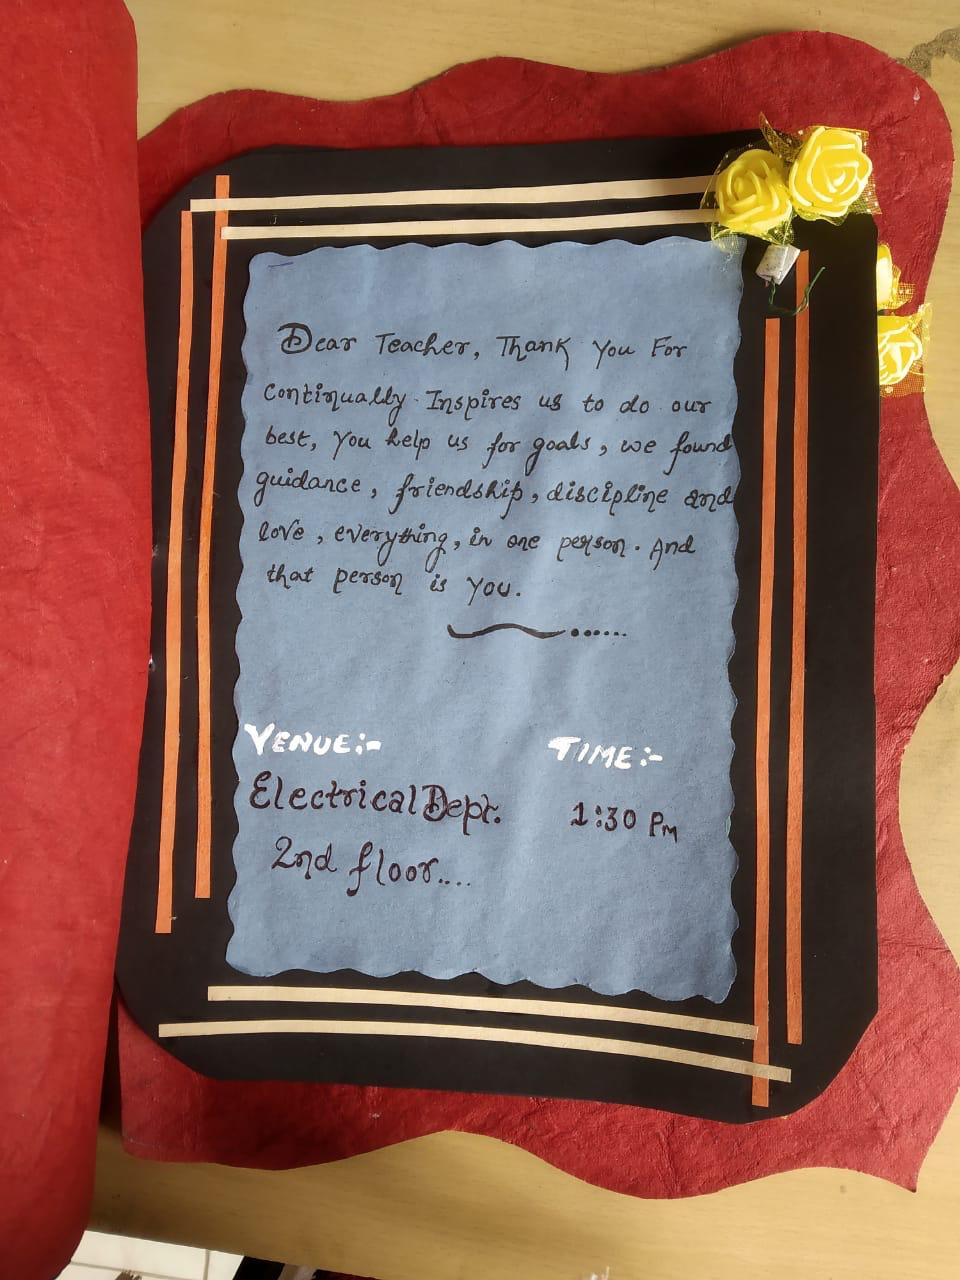 Dear Teacher, Thank You For
Continually Inspires us to do our
best, You help us for goals, we found
guidance, friendship, discipline and
love, everything, in one person. And
that person is You.
VENUE:- TIME:-
Electrical Dept. 1:30 PM
2nd floor....